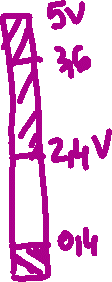 5V
3,6
2,4V
0,4